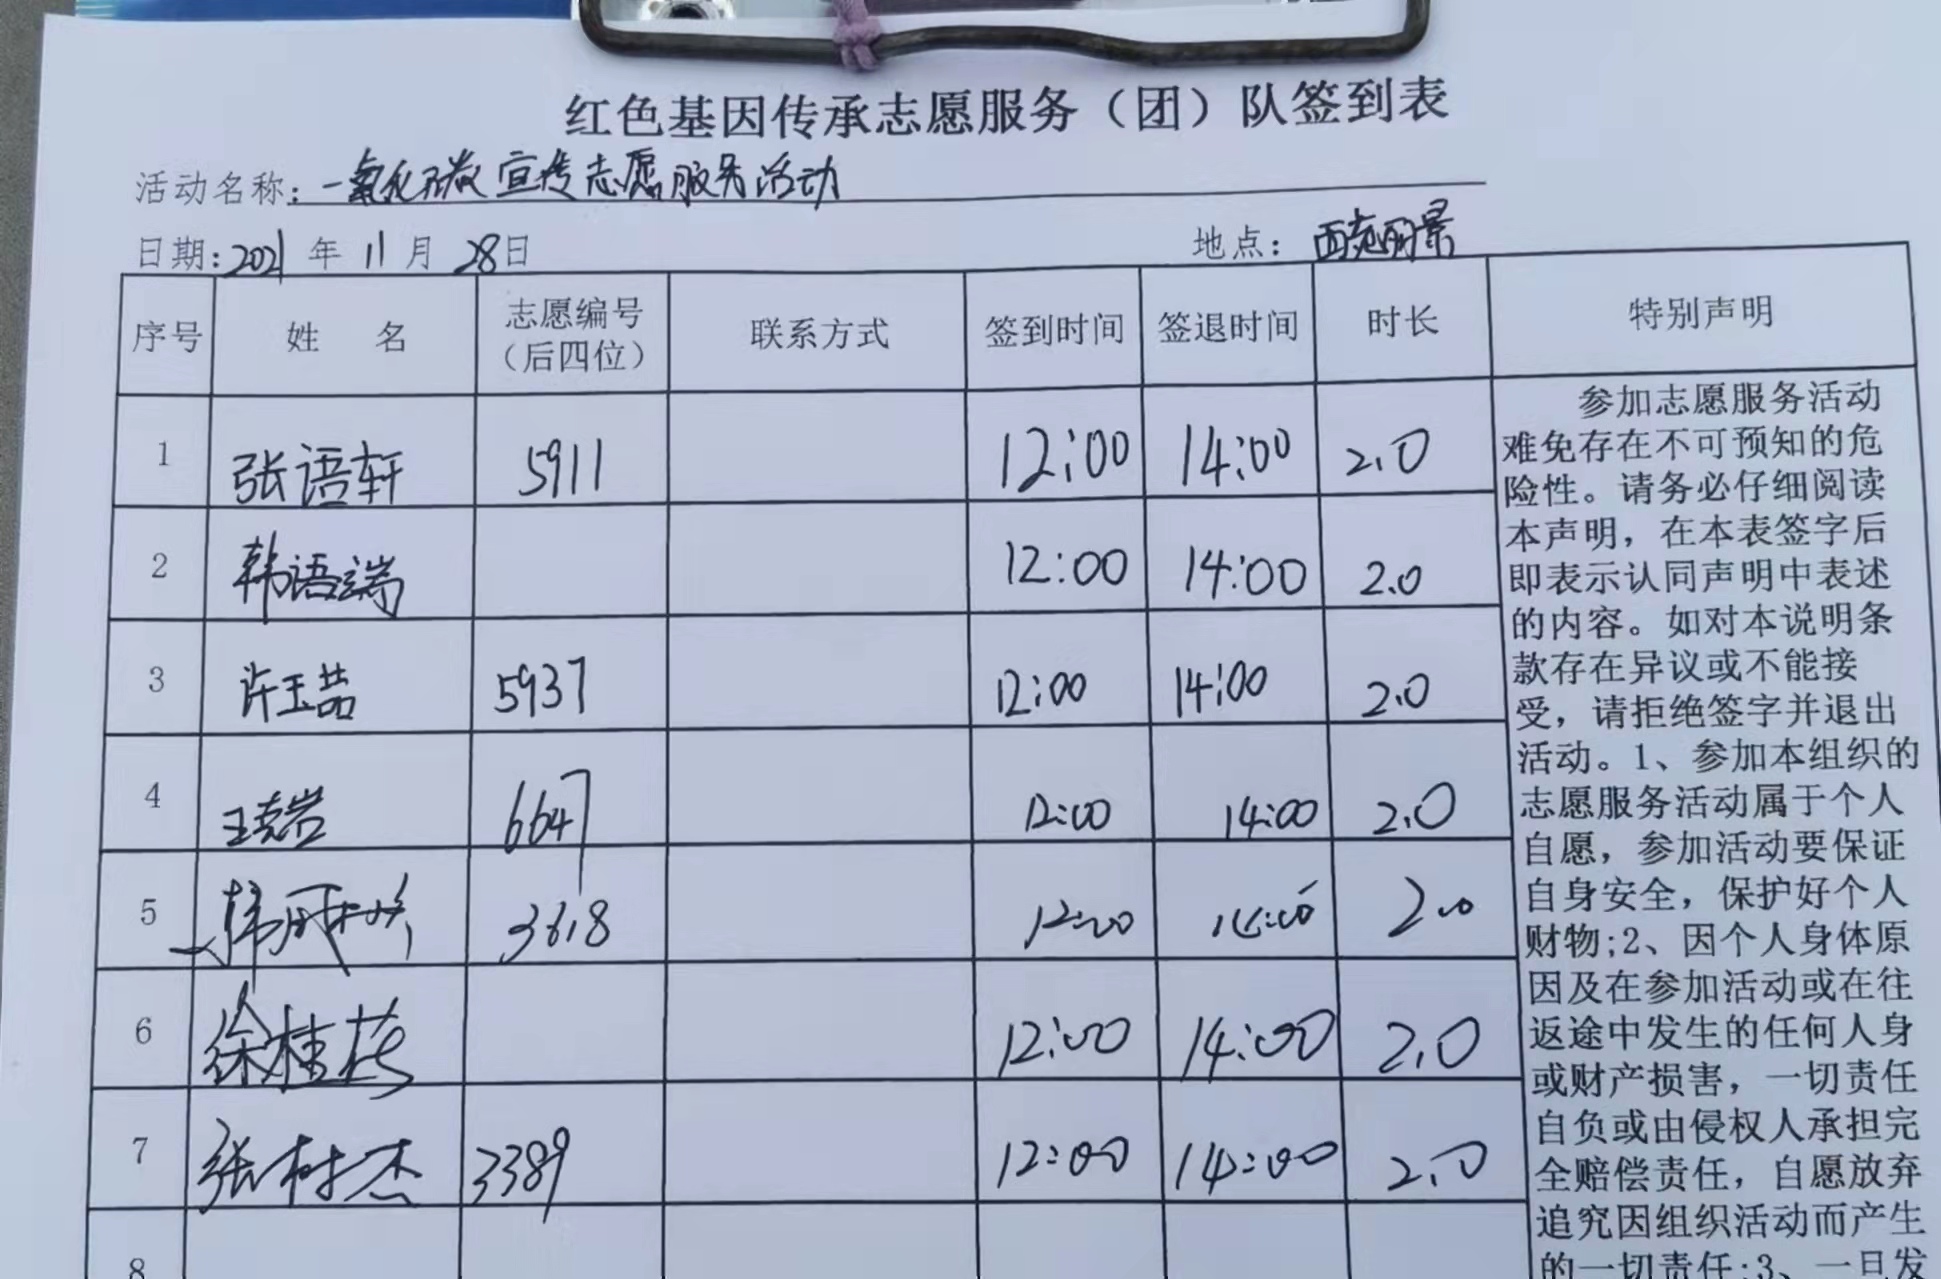 红色基因传承志愿服务（团）队签到表
活动名称：一氧化碳宣传志愿服务活动
日期：2021年11月28日 地点：西苑丽景
序号 姓 名 志愿编号（后四位） 联系方式 签到时间 签退时间 时长 特别声明
1 张语轩 5911 12:00 14:00 2.0
2 韩语端 12:00 14:00 2.0
3 许玉喆 5937 12:00 14:00 2.0
4 6647 12:00 14:00 2.0
5 3618 12:00 14:00 2.0
6 徐桂花 12:00 14:00 2.0
7 张树杰 3389 12:00 14:00 2.0
8
参加志愿服务活动
难免存在不可预知的危
险性。请务必仔细阅读
本声明，在本表签字后
即表示认同声明中表述
的内容。如对本说明条
款存在异议或不能接
受，请拒绝签字并退出
活动。1、参加本组织的
志愿服务活动属于个人
自愿，参加活动要保证
自身安全，保护好个人
财物;2、因个人身体原
因及在参加活动或在往
返途中发生的任何人身
或财产损害，一切责任
自负或由侵权人承担完
全赔偿责任，自愿放弃
追究因组织活动而产生
的一切责任;3、一旦发